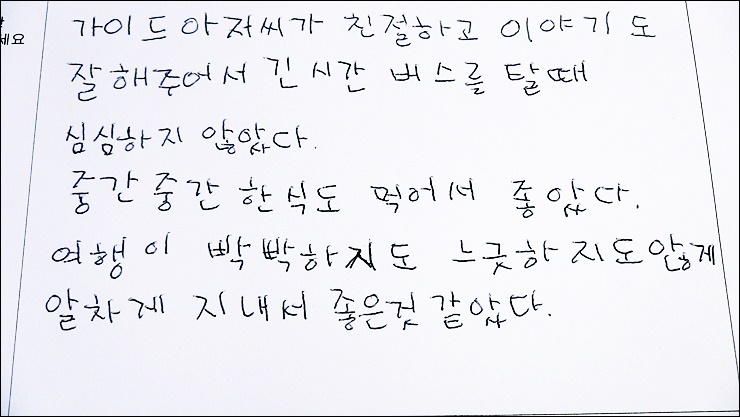 세요
가이드아저씨가 친절하고 이야기도
잘해주어서 긴시간 버스를 탈때
심심하지 않았다.
중간중간 한식도 먹어서 좋았다.
여행이 빡빡하지도 느긋하지도않게
알차게 지내서 좋은것같았다.